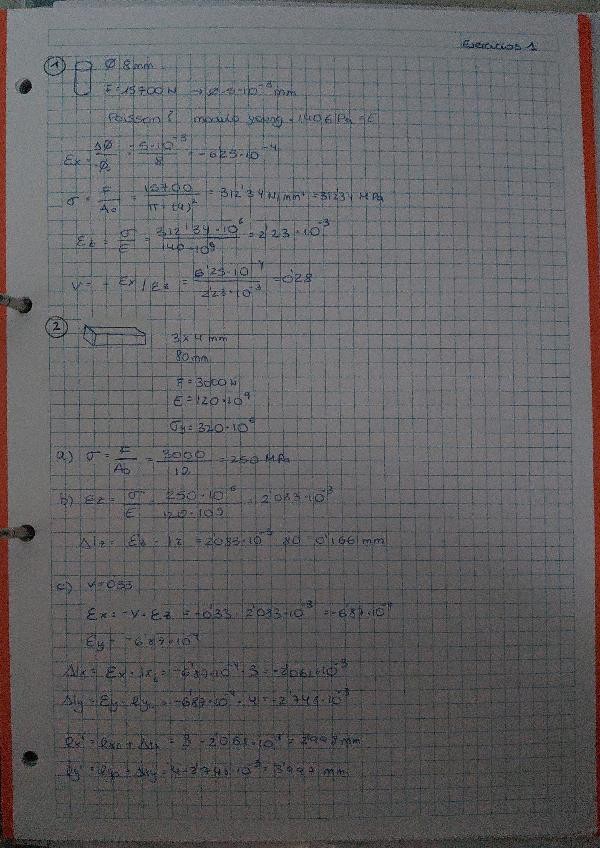 Ejercicios 1
1 Ø 8mm
F = 15700 N → Ø 5·10⁻³ mm
Poisson? modulo young = 140 GPa = E
Ex = ΔØ/Ø₀ = 5·10⁻³/8 = -6'25·10⁻⁴
σ = F/A₀ = 15700/π·(4)² = 312'34 N/mm² = 312'34 MPa
Ez = σ/E = 312'34·10⁶/140·10⁹ = 2'23·10⁻³
V = - Ex/Ez = 6'25·10⁻⁴/2'23·10⁻³ = 0'28
2 3 x 4 mm
80mm
F = 3000 N
E = 120·10⁹
σy = 320·10⁶
a) σ = F/A₀ = 3000/12 = 250 MPa
b) Ez = σ/E = 250·10⁶/120·10⁹ = 2'083·10⁻³
Δlz = Ez · lz = 2'083·10⁻³ · 80 = 0'166 mm
c) V = 0'33
Ex = -V · Ez = -0'33 · 2'083·10⁻³ = -6'87·10⁻⁴
Ey = -6'87·10⁻⁴
Δlx = Ex · lx₀ = -6'87·10⁻⁴ · 3 = -2'061·10⁻³
Δly = Ey · ly₀ = -6'87·10⁻⁴ · 4 = -2'748·10⁻³
lx' = lx₀ + Δlx = 3 - 2'061·10⁻³ = 2'998 mm
ly' = ly₀ + Δly = 4 - 2'748·10⁻³ = 3'997 mm